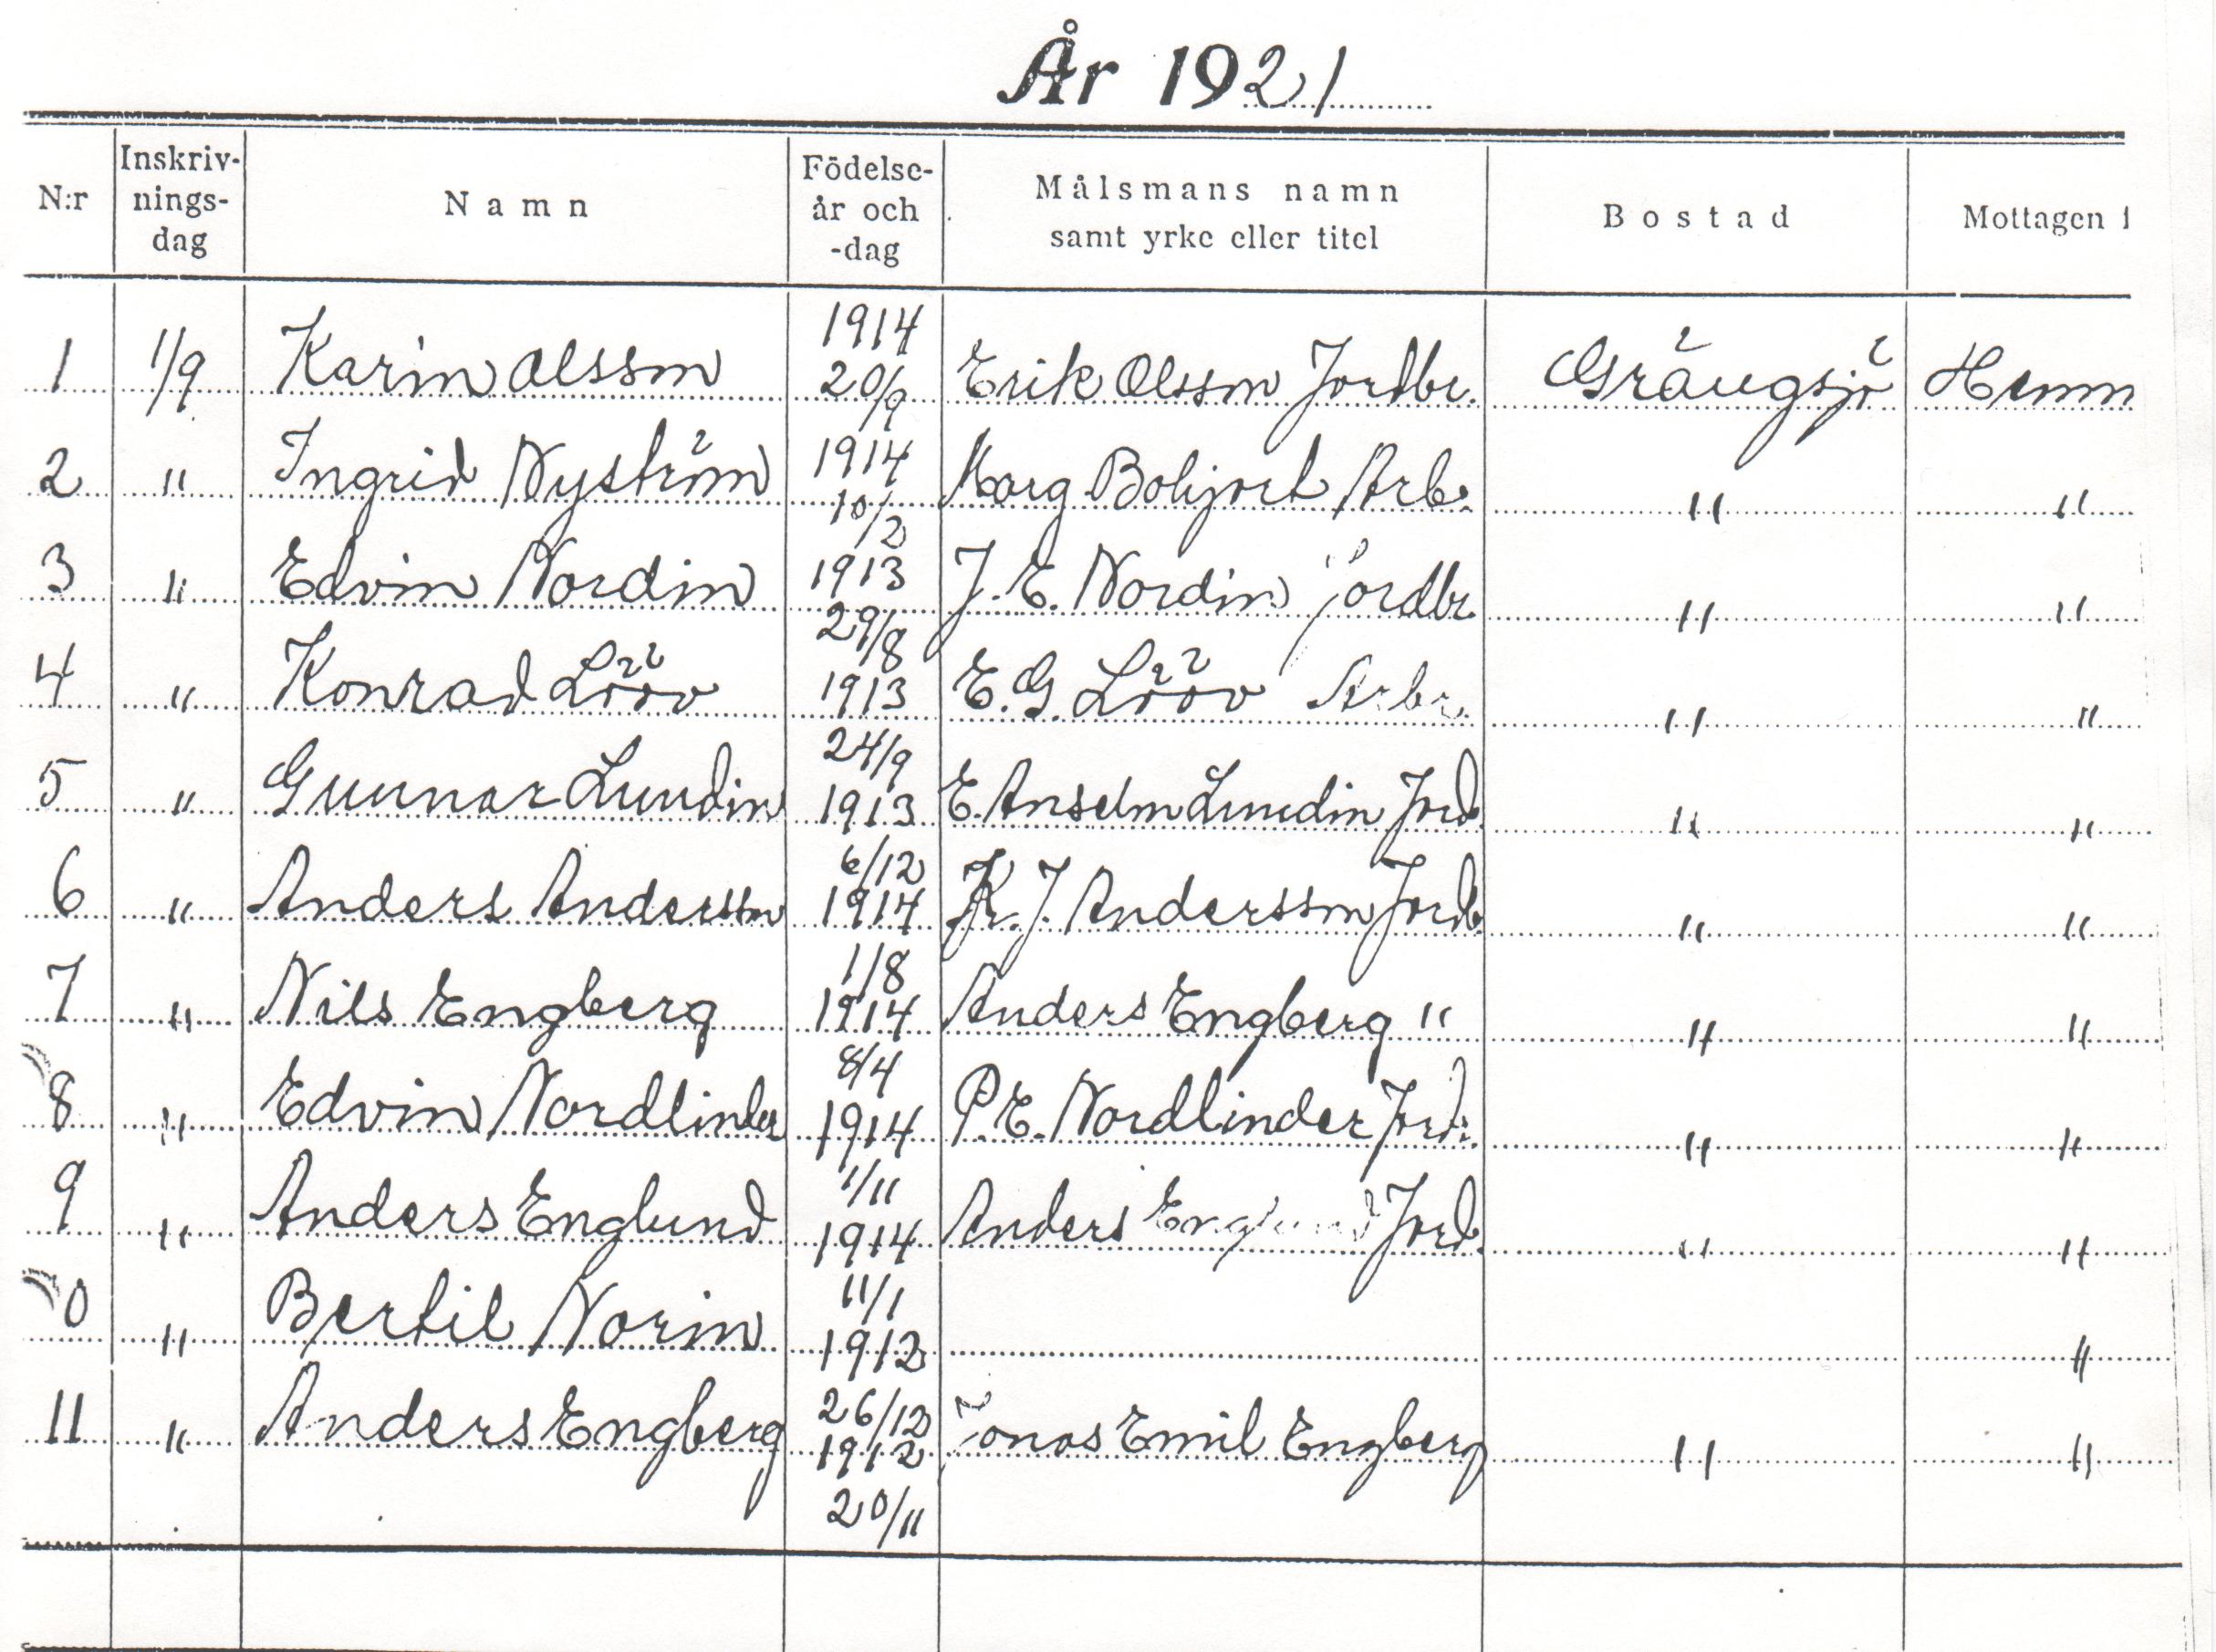 År 1921
N:r Inskriv-nings-dag Namn Födelse-år och -dag Målsmans namn samt yrke eller titel Bostad Mottagen i
1 1/9 Karin Olsson 1914 20/9 Erik Olsson Jordbr. Grängsjö Hemm
2 " Ingrid Nyström 1914 10/2 Marg Bohjort Arb. " "
3 " Edvin Nordin 1913 29/8 J. E. Nordin jordbr. " "
4 " Konrad Lööv 1913 24/9 E. G. Lööv Arbr. " "
5 " Gunnar Lundin 1913 6/12 E. Anselm Lundin Jord. " "
6 " Anders Andersson 1914 1/8 J. Andersson Jordb. " "
7 " Nils Engberg 1914 8/4 Anders Engberg " " "
8 " Edvin Nordlinder 1914 1/11 P. E. Nordlinder Jordb. " "
9 " Anders Englund 1914 11/1 Anders Englund Jordb. " "
0 " Bertil Norin 1912 26/12 "
11 " Anders Engberg 1912 20/11 Jonas Emil Engberg " "